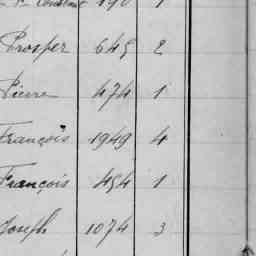 Constant 190 1
Prosper 645 2
Pierre 474 1
François 1949 4
François 454 1
Joseph 1074 3